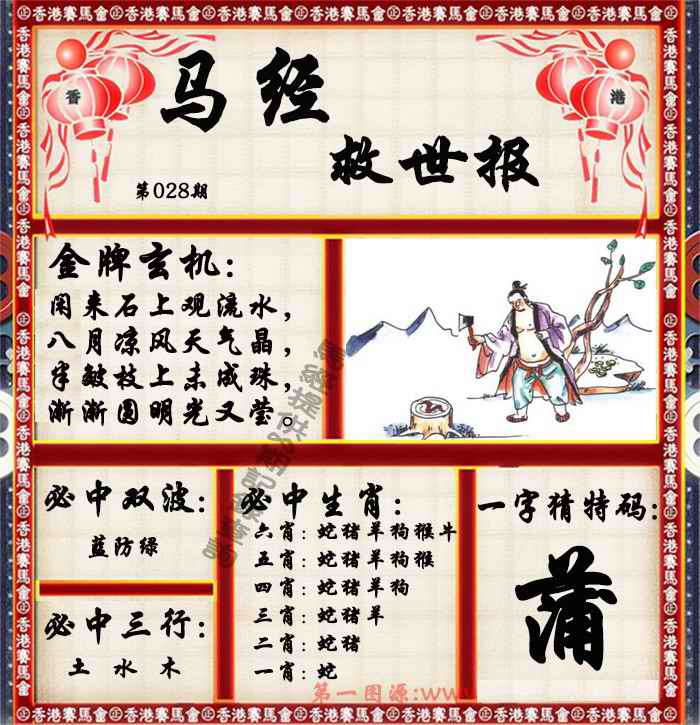 香港賽馬會
香
港
马经
救世报
第028期
金牌玄机:
闲来石上观流水,
八月凉风天气晶,
半皱枝上未成珠,
渐渐圆明光又莹。
必中双波:
蓝防绿
必中三行:
土 水 木
必中生肖:
六肖:蛇猪羊狗猴牛
五肖:蛇猪羊狗猴
四肖:蛇猪羊狗
三肖:蛇猪羊
二肖:蛇猪
一肖:蛇
一字猜特码:
蒲
第一图源:www